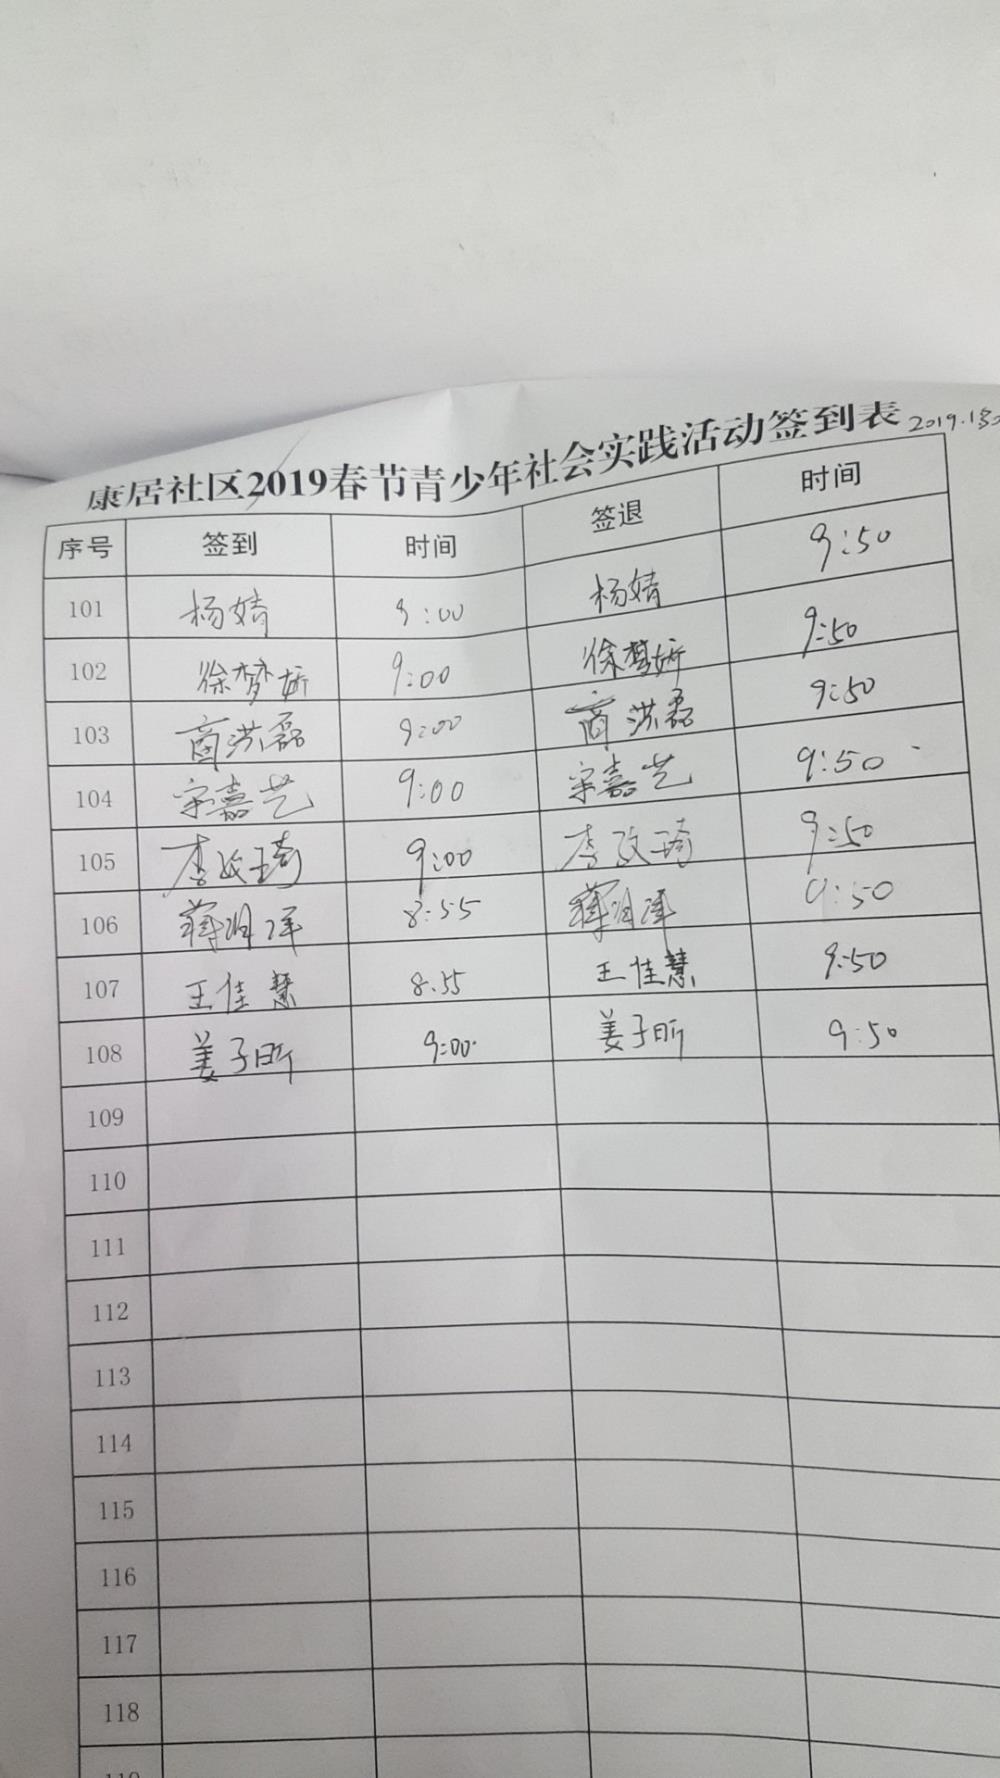 康居社区2019春节青少年社会实践活动签到表 2019.1.30
序号 签到 时间 签退 时间
101 杨婧 9:00 杨婧 9:50
102 徐梦妍 9:00 徐梦妍 9:50
103 商洪磊 9:00 商洪磊 9:50
104 宗嘉艺 9:00 宗嘉艺 9:50
105 李玟琦 9:00 李玟琦 9:50
106 蒋 8:55 蒋 9:50
107 王佳慧 8:55 王佳慧 9:50
108 姜子昕 9:00 姜子昕 9:50
109
110
111
112
113
114
115
116
117
118